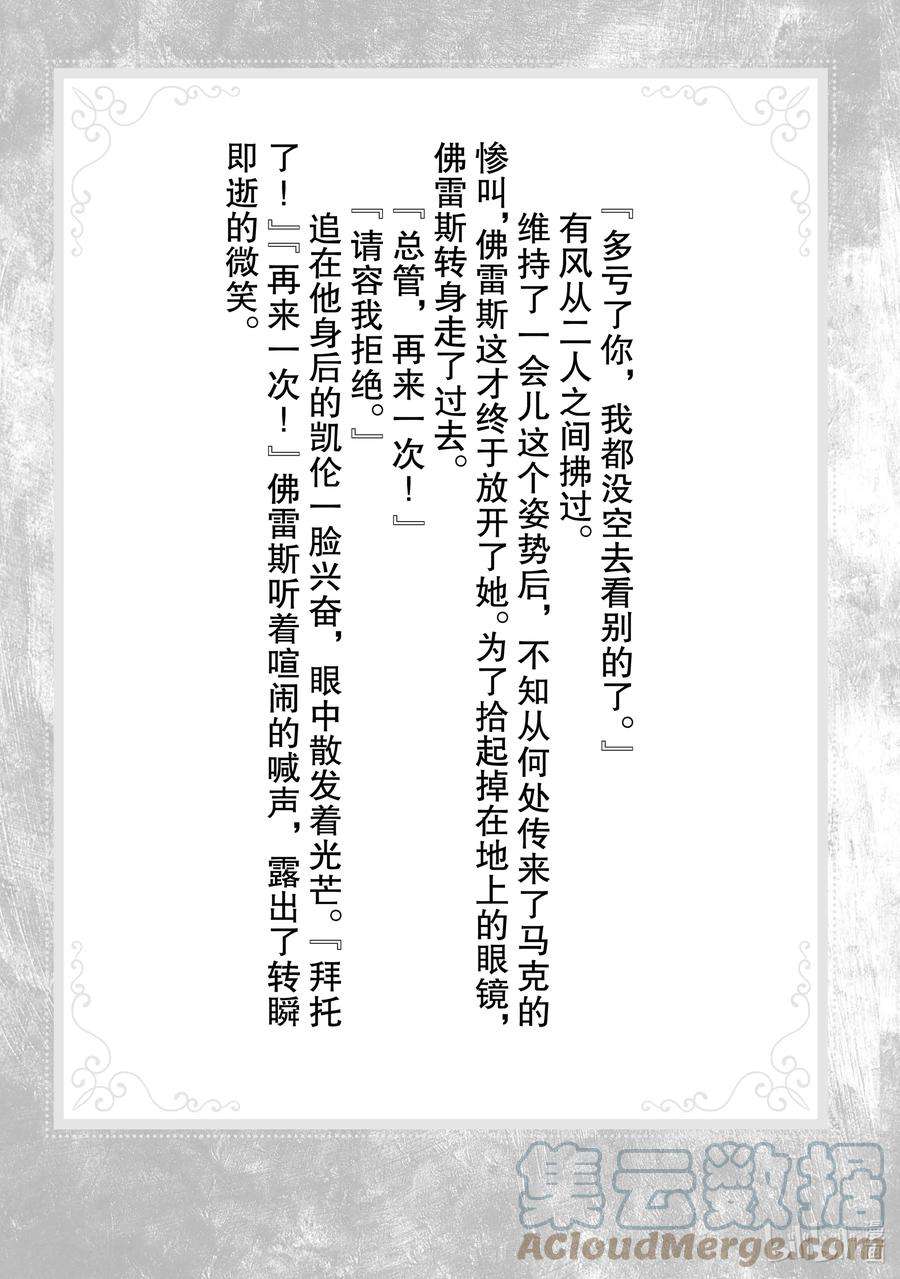 『多亏了你，我都没空去看别的了。』
有风从二人之间拂过。
维持了一会儿这个姿势后，不知从何处传来了马克的
惨叫，佛雷斯这才终于放开了她。为了拾起掉在地上的眼镜，
佛雷斯转身走了过去。
『总管，再来一次！』
『请容我拒绝。』
追在他身后的凯伦一脸兴奋，眼中散发着光芒。『拜托
了！』『再来一次！』佛雷斯听着喧闹的喊声，露出了转瞬
即逝的微笑。
集云数据
ACloudMerge.com